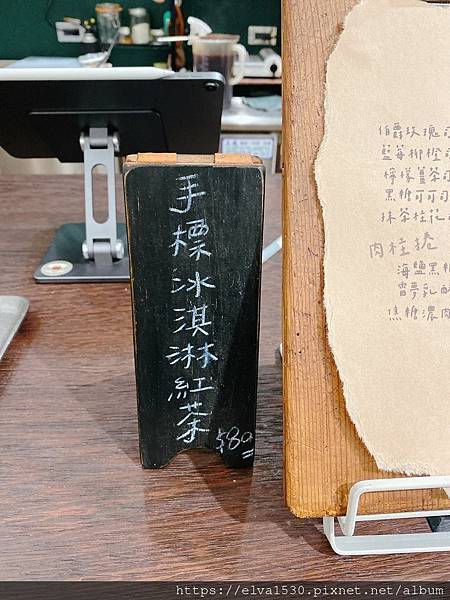 手標冰淇淋紅茶
$80
伯爵玫瑰
藍莓柳橙
檸檬薑茶
黑糖可可
抹茶桂花
肉桂捲
海鹽黑糖
焦糖濃肉
https://elva1530.pixnet.net/album